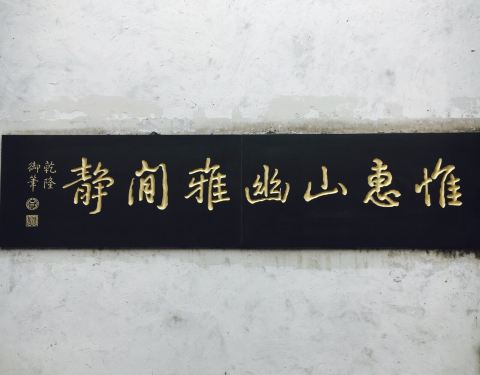 惟惠山幽雅閒静
乾隆
御筆